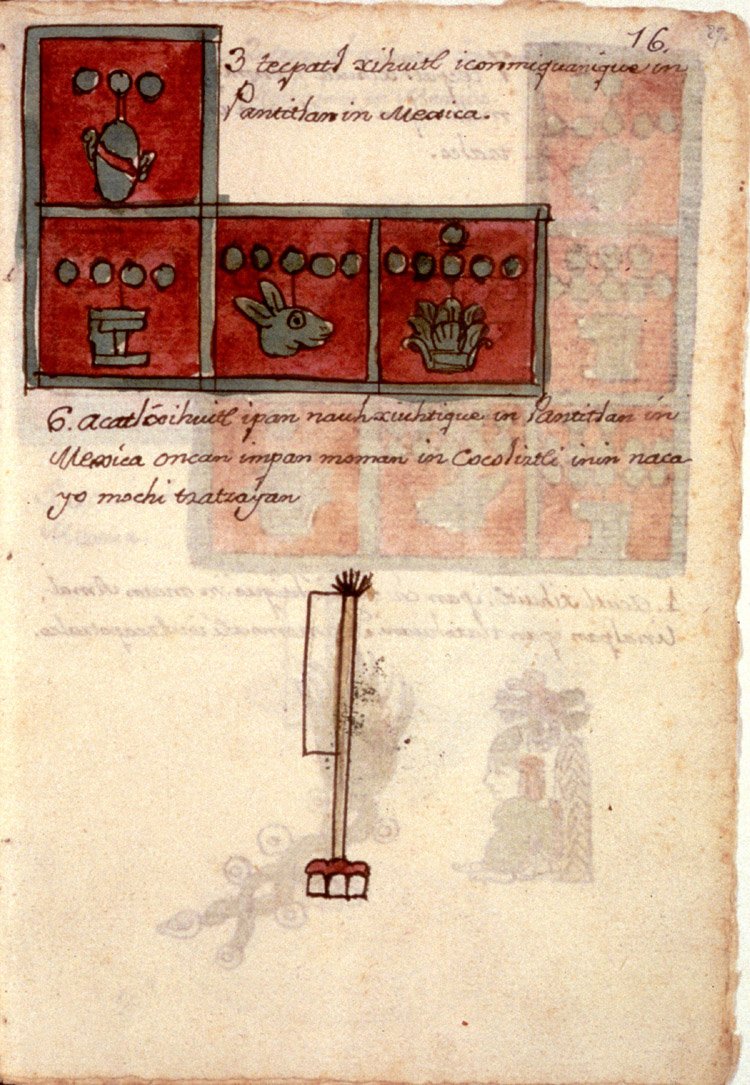 16.
3 tecpatl xihuitl iconmiquanique in
Pantitlan in Mexica.
6. acatl xihuitl ipan nauhxiuhtique in Pantitlan in
Mexica oncan impan moman in Cocoliztli inin naca
yo mochi tzatzayan